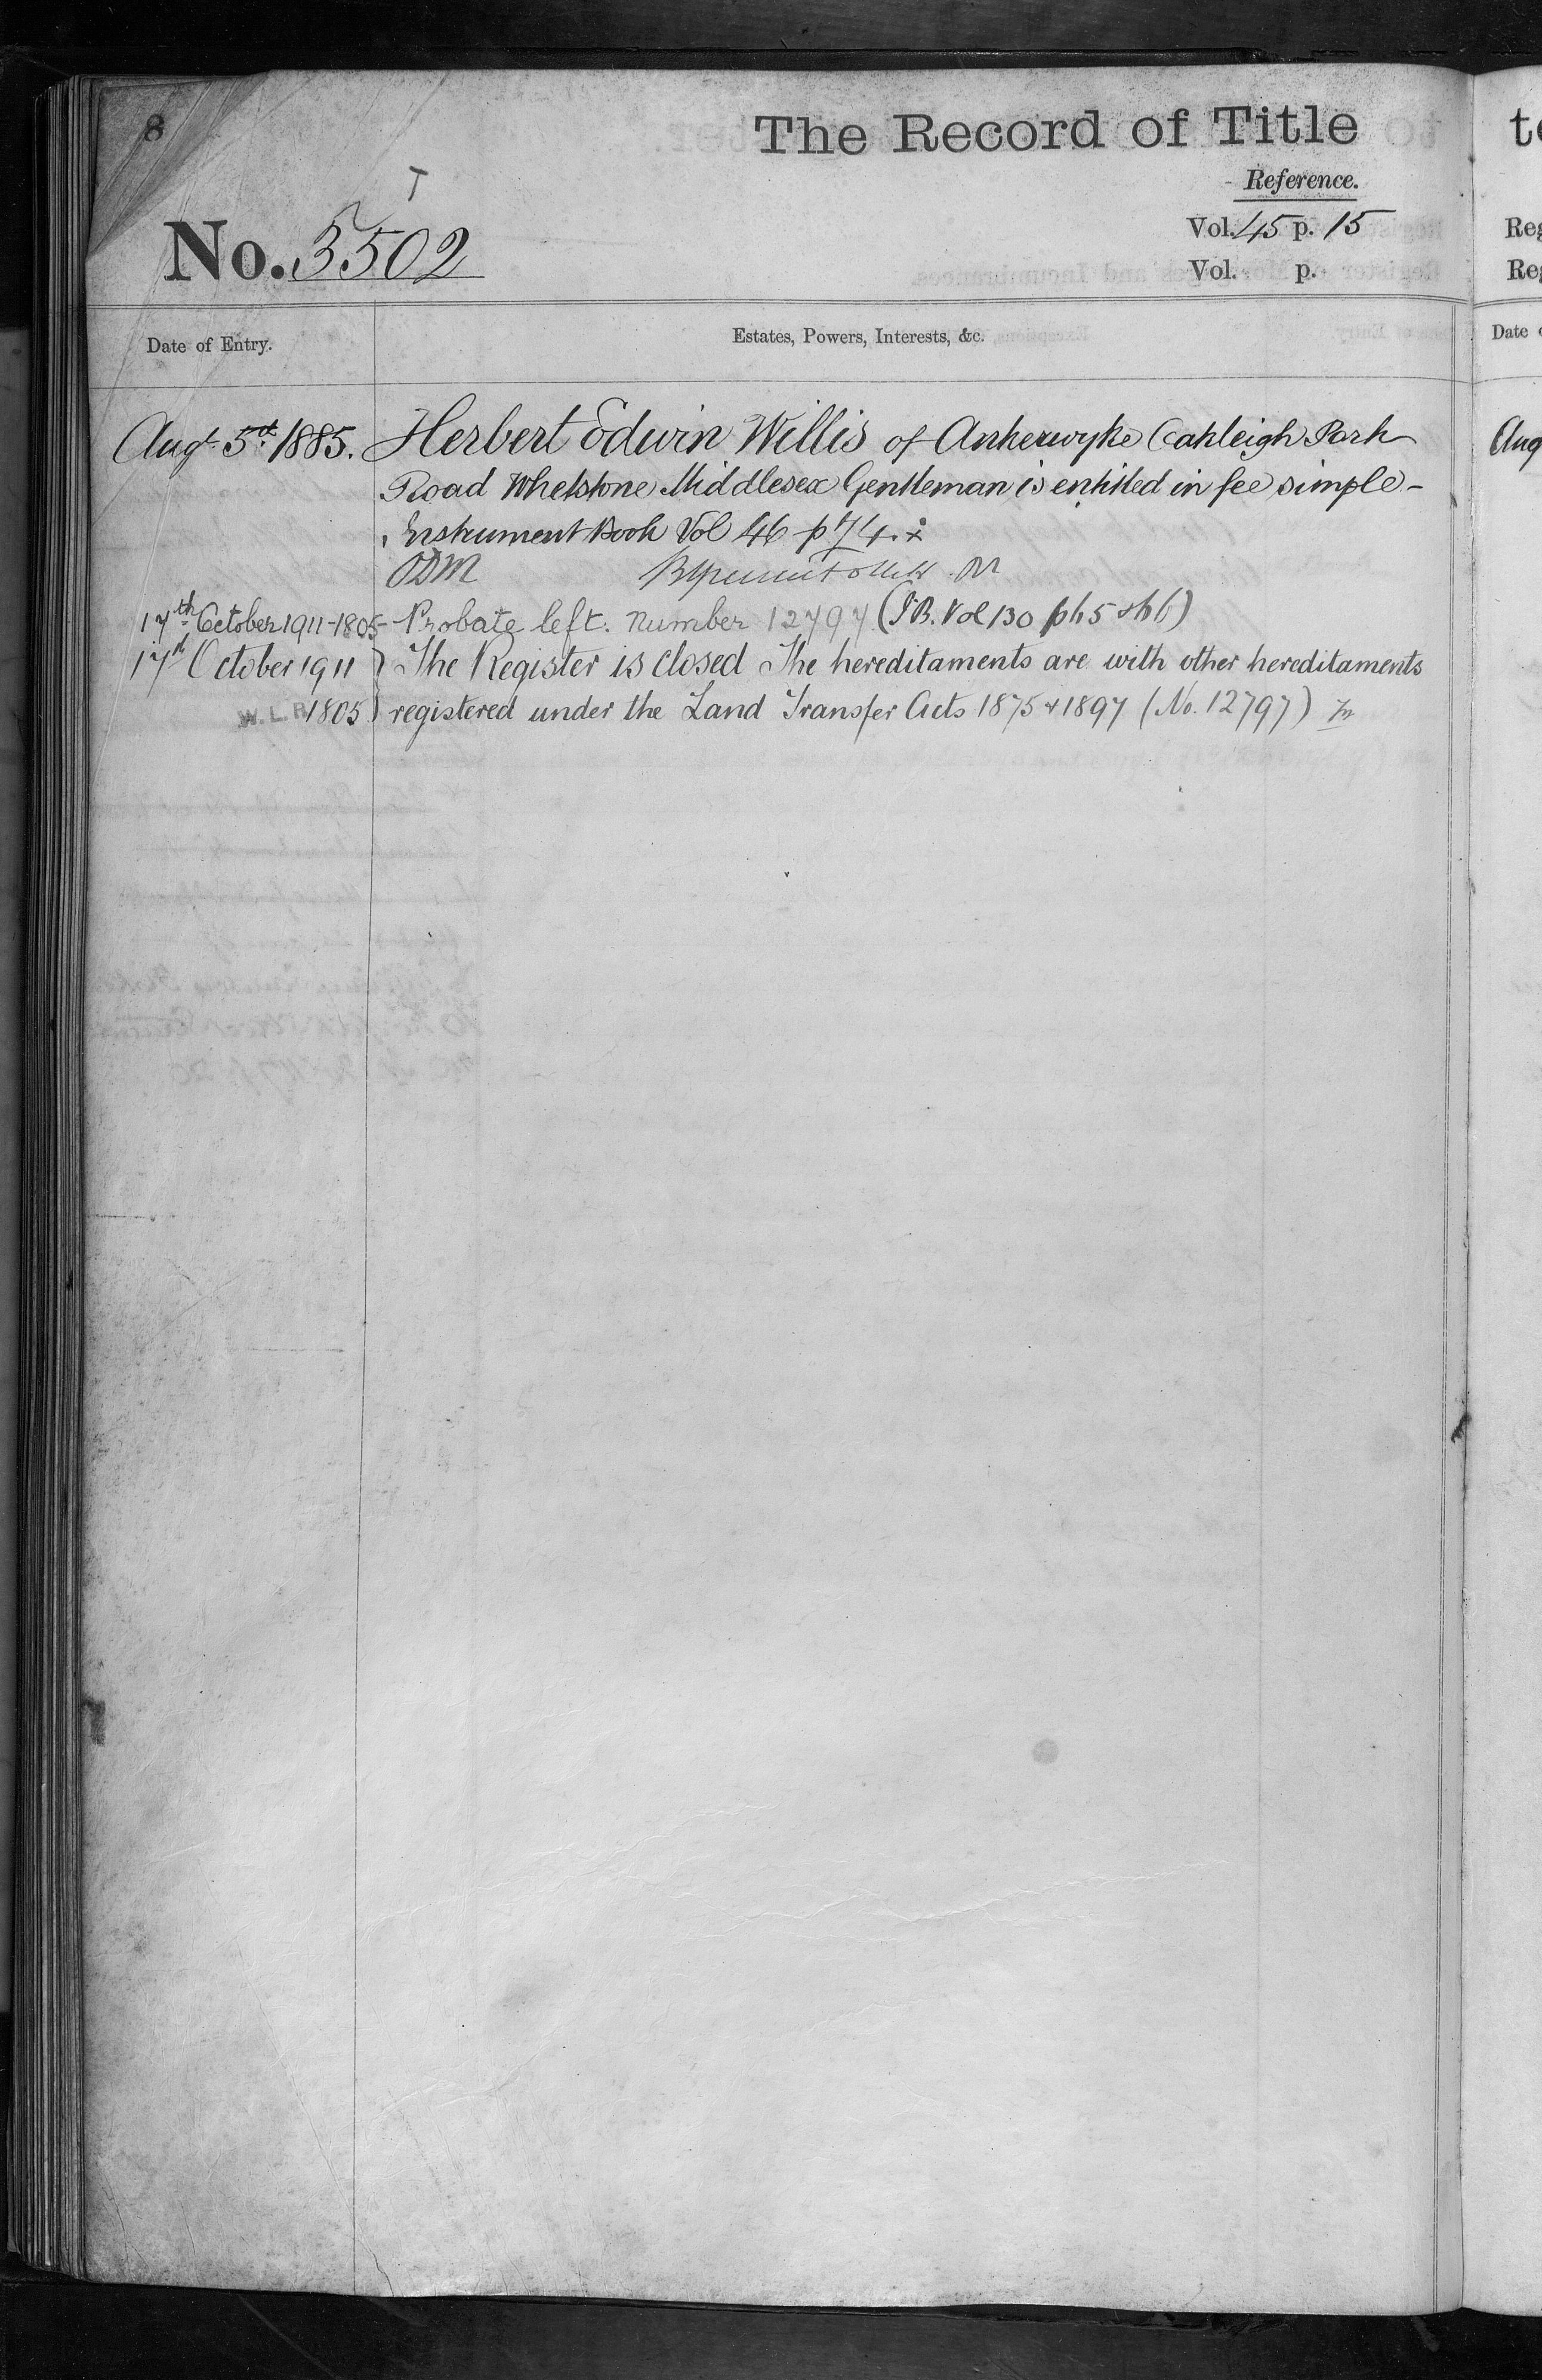 8
The Record of Title
Reference.
T
No. 3502
Vol. 45 p. 15
Vol. p.
Date of Entry.
Estates, Powers, Interests, &c.
Augt 5th 1885. Herbert Edwin Willis of Ankerwyke Oakleigh Park
Road Whetstone Middlesex Gentleman is entitled in fee simple -
Instrument Book Vol 46 p 74.
ODM
17th October 1911 - 1805 - Probate left. Number 12797 (I.B. Vol 130 p 65 & 66)
17th October 1911 } The Register is closed The hereditaments are with other hereditaments
W.L.R 1805 } registered under the Land Transfer Acts 1875 & 1897 (No. 12797)
to
Reg
Reg
Date
Aug